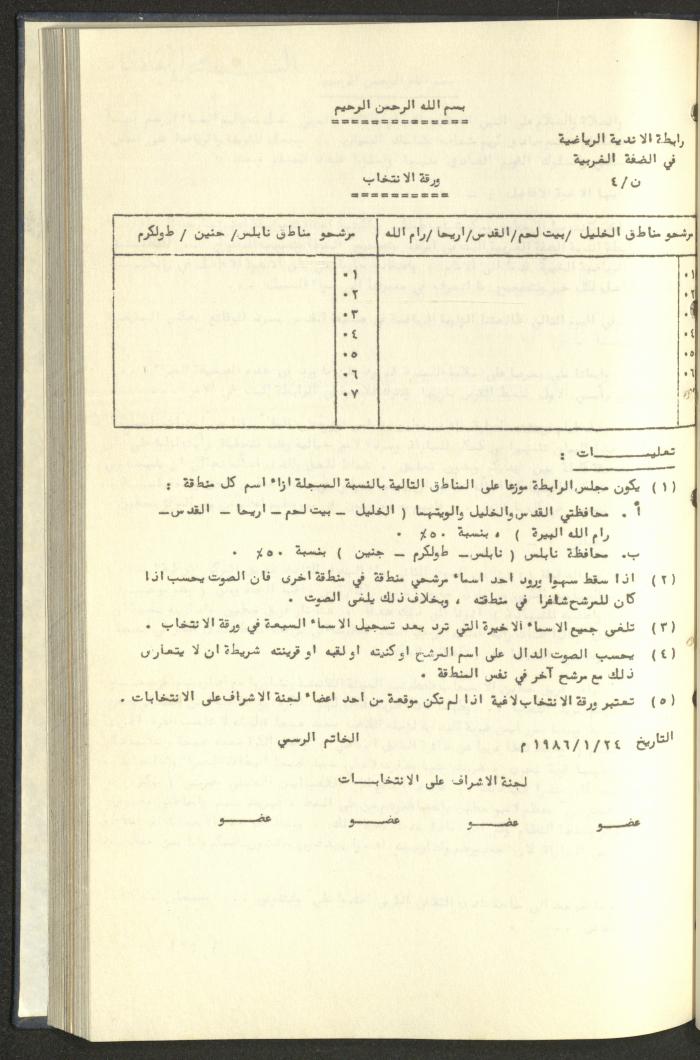 بسم الله الرحمن الرحيم
رابطة الاندية الرياضية
في الضفة الغربية
ن/٤
ورقة الانتخاب
مرشحو مناطق الخليل /بيت لحم/القدس/اريحا /رام الله
مرشحو مناطق نابلس/ حنين / طولكرم
٠١ ٠١
٠٢ ٠٢
٠٣ ٠٣
٠٤ ٠٤
٠٥ ٠٥
٠٦ ٠٦
٠٧
تعليمـــــــات :
(١) يكون مجلس الرابطة موزعا على المناطق التالية بالنسبة المسجلة ازاء اسم كل منطقة :
أ . محافظتي القدس والخليل والويتهما ( الخليل ــ بيت لحم ــ اريحا ــ القدس ــ
رام الله البيرة ) ، بنسبة ٥٠٪ .
ب. محافظة نابلس ( نابلس ــ طولكرم ــ جنين ) بنسبة ٥٠٪ .
(٢) اذا سقط سهوا ورود احد اسماء مرشحي منطقة في منطقة اخرى فان الصوت يحسب اذا
كان للمرشح شاغرا في منطقته ، وبخلاف ذلك يلغى الصوت .
(٣) تلغى جميع الاسماء الاخيرة التي ترد بعد تسجيل الاسماء السبعة في ورقة الانتخاب .
(٤) يحسب الصوت الدال على اسم المرشح اوكنيته اولقبه او قرينته شريطة ان لا يتعارض
ذلك مع مرشح آخر في نفس المنطقة .
(٥) تعتبر ورقة الانتخاب لاغية اذا لم تكن موقعة من احد اعضاء لجنة الاشراف على الانتخابات .
التاريخ ١٩٨٦/١/٢٤ م الخاتم الرسمي
لجنة الاشراف على الانتخابـــات
عضــــو عضــــو عضــــو عضــــو